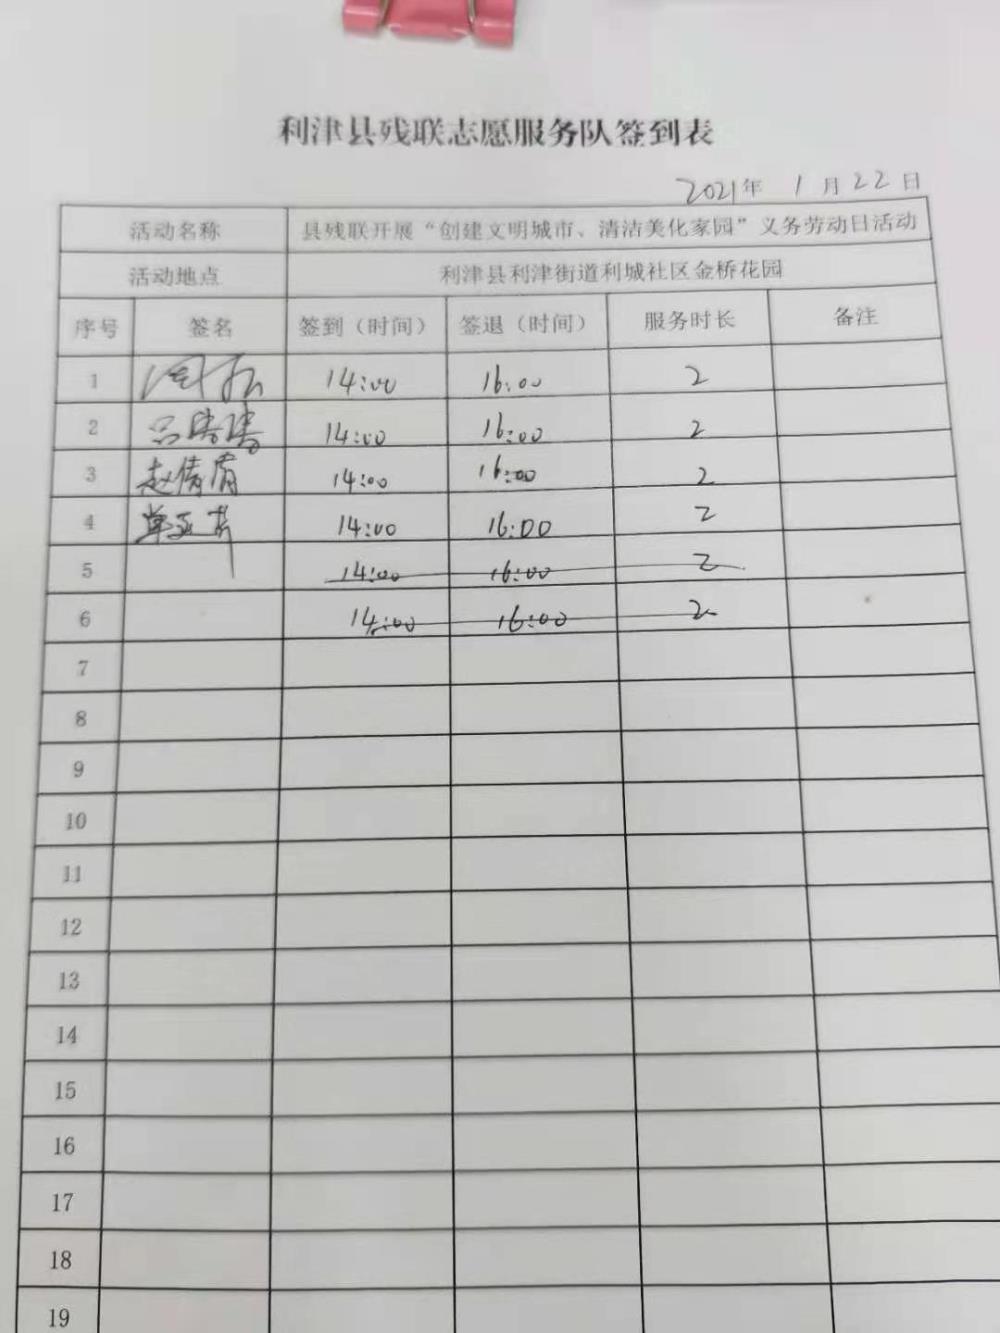 利津县残联志愿服务队签到表
2021年 1月22日
活动名称 县残联开展“创建文明城市、清洁美化家园”义务劳动日活动
活动地点 利津县利津街道利城社区金桥花园
序号 签名 签到（时间） 签退（时间） 服务时长 备注
1 14:00 16:00 2
2 14:00 16:00 2
3 赵倩 14:00 16:00 2
4 14:00 16:00 2
5 14:00 16:00 2
6 14:00 16:00 2
7
8
9
10
11
12
13
14
15
16
17
18
19